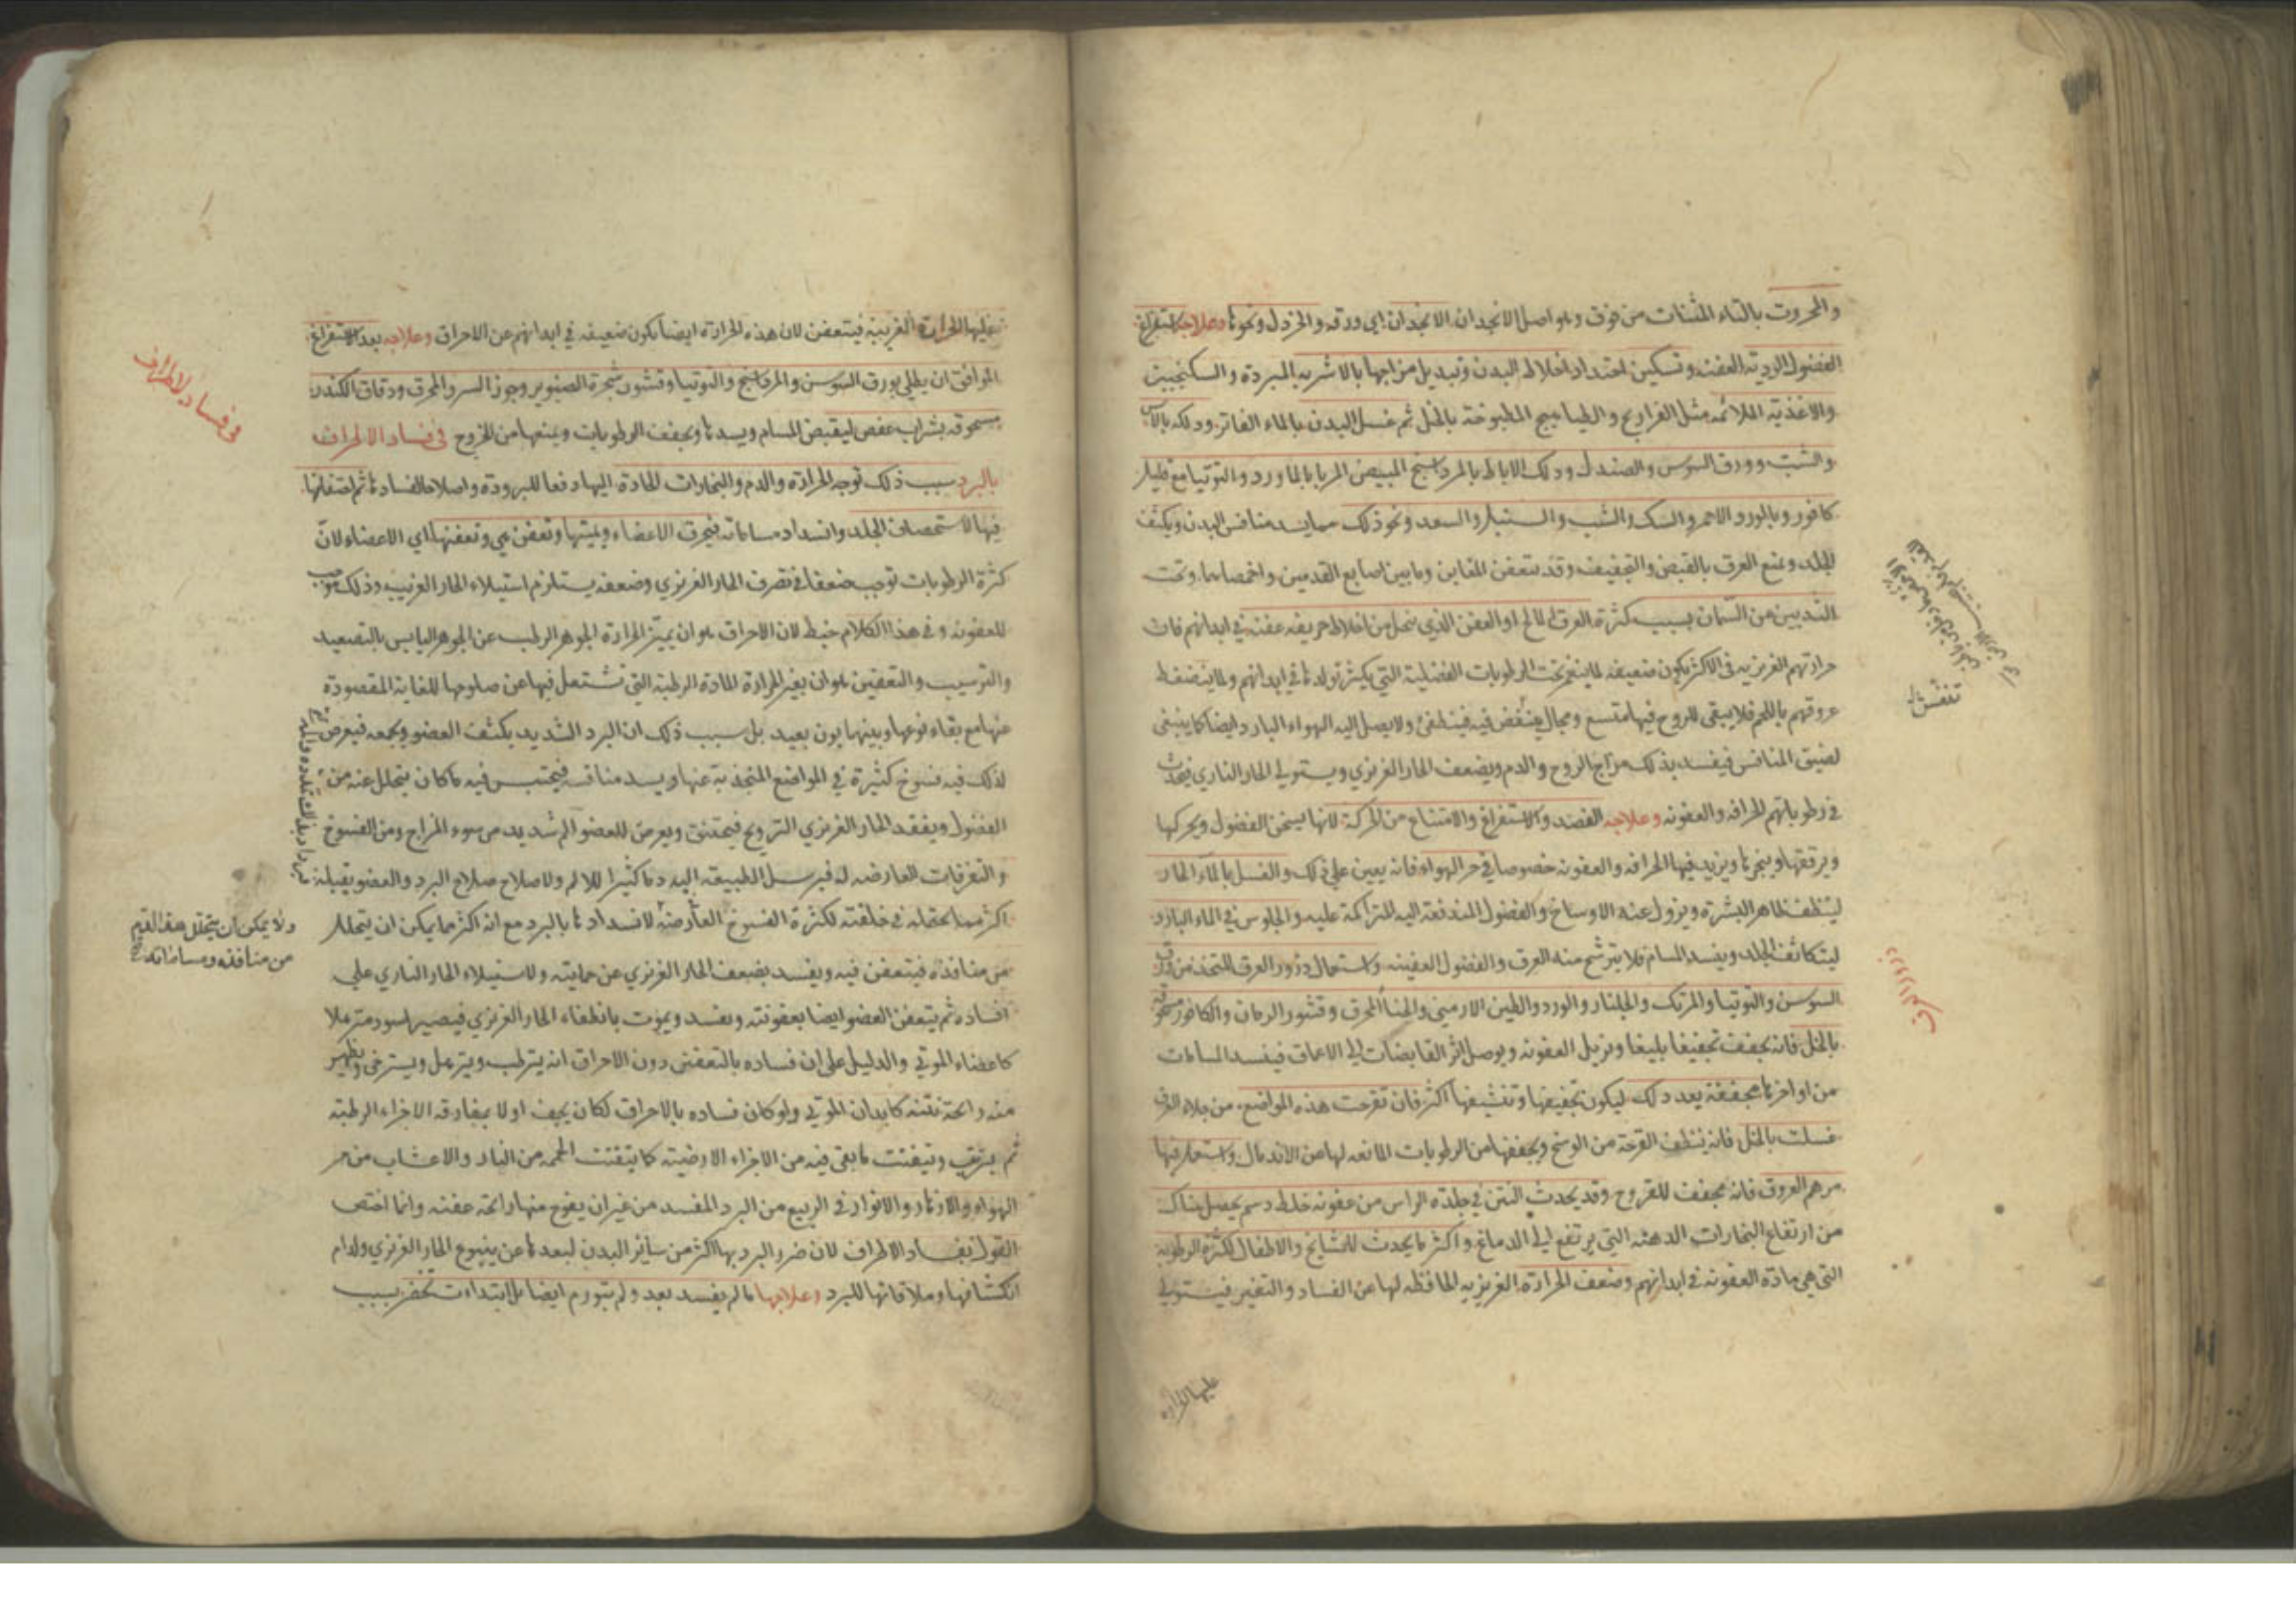 والمحروت بالتاء المثنات من فوق وهو اصل الانجدان الانجدان اي ورقه والخردل ونحوها وعلاجه استفراغ
الفضول الردية العفنة وتسكين احتداد اخلاط البدن وتبديل مزاجها بالاشربه المبردة والسكنجبين
والاغذية الملائمة مثل الفراريج والطياهيج المطبوخة بالخل ثم غسل البدن بالماء الفاتر ودلكه بالآس
والشب وورق السوسن والصندل ودلك الاباط بالمرداسنج المبيض المربا بالماورد والتوتيا مع قليل
كافور وبالورد الاحمر والسك والشب والسنبل والسعد ونحو ذلك مما يسد منافس البدن ويكثف
الجلد ويمنع العرق بالقبض والتجفيف وقد يتعفن المغابن وما بين اصابع القدمين واخمصاهما وتحت
الثديين من السمان بسبب كثرة العرق المالح او العفن الذي يتحلل من اخلاط حريفه عفنة في ابدانهم فان
حرارتهم الغريزيه في الاكثر يكون ضعيفه لما ينغمر تحت الرطوبات الفضلية التي يكثر تولدها في ابدانهم ولما ينضغط
عروقهم باللحم فلا يبقى للروح فيها متسع ومجال يتنفس فيه فينطفئ ولا يصل اليه الهواء البارد ايضا كما ينبغي
لضيق المنافس فيفسد بذلك مزاج الروح والدم ويضعف الحار الغريزي ويستولي الحار الناري فيحدث
في رطوباتهم الحرافه والعفونه وعلاجه الفصد والاستفراغ والامتناع من الحركة لانها يسخن الفضول ويحركها
ويرققها ويبخرها ويزيد فيها الحرافه والعفونه خصوصا في حر الهواء فانه يعين على ذلك والغسل بالماء الحار
لينظف ظاهر البشرة ويزول عنه الاوساخ والفضول المندفعة اليه المتراكمة عليه والجلوس في الماء البارد
ليتكاثف الجلد وينسد المسام فلا يترشح منه العرق والفضول العفينه واستعمال ذرور العرق المتخذ من ورق
السوسن والتوتيا والمرتك والجلنار والورد والطين الارمني والحنا المحرق وقشور الرمان والكافور مسحوقه
بالخل فانه يجفف تجفيفا بليغا ويزيل العفونه ويوصل اثر القابضات الى الاعماق فينسد المسامات
من اواخرها مجففة بعد ذلك ليكون تجفيفها وتنشيفها اكثر فان تقرحت هذه المواضع من جلاء العرق
غسلت بالخل فانه ينظف القرحة من الوسخ ويجففها من الرطوبات المانعه لها عن الاندمال واستعمل فيها
مرهم العروق فانه مجفف للقروح وقد يحدث النتن في جلدة الراس من عفونه خلط دسم يحصل هناك
من ارتفاع البخارات الدهنه التي يرتفع الى الدماغ واكثر ما يحدث للمشايخ والاطفال لكثرة الرطوبه
التي هي مادة العفونه في ابدانهم وضعف الحرارة الغريزيه الحافظه لها عن الفساد والتغير فيستولي
تنفس
ذرور العرق
عليها الحرارة
عليها الحرارة الغريبه فيتعفن لان هذه الحرارة ايضا يكون ضعيفه في ابدانهم عن الاحراق وعلاجه بعد الاستفراغ
الموافق ان يطلى بورق السوسن والمرداسنج والتوتيا وقشور شجرة الصنوبر وجوز السرو المحرق ودقاق الكندر
مسحوقه بشراب عفص ليقبض المسام ويسدها ويجفف الرطوبات ويمنعها من الخروج في فساد الاطراف
بالبرد سبب ذلك توجه الحرارة والدم والبخارات الحادة اليها دفعا للبرودة واصلاحا لفسادها ثم احتقانها
فيها لاستحصاف الجلد وانسداد مساماته فيحرق الاعضاء ويميتها وتعفن هي وتعفنها اي الاعضاء لان
كثرة الرطوبات توجب ضعفا في تصرف الحار الغريزي وضعفه يستلزم استيلاء الحار الغريب وذلك موجب
للعفونه وفي هذا الكلام خبط لان الاحراق هو ان يميز الحرارة الجوهر الرطب عن الجوهر اليابس بالتصعيد
والترسيب والتعفين هو ان يغير الحرارة المادة الرطبة التي تشتعل فيها عن صلوحها للغاية المقصودة
عنها مع بقاء نوعها وبينهما بون بعيد بل سبب ذلك ان البرد الشديد يكثف العضو ويجمعه فيعرض
لذلك فيه فسوخ كثيرة في المواضع المنجذبة عنها ويسد منافسه فيحتبس فيه ما كان يتحلل عنه من
الفضول ويفقد الحار الغريزي الترويح فيختنق ويعرض للعضو الم شديد من سوء المزاج ومن الفسوخ
والتفرقات العارضه له فيرسل الطبيعه اليه دما كثيرا للالم ولاصلاح صلاح البرد والعضو يقبله
اكثر مما احتمله في خلقته لكثرة الفسوخ العارضة لانسدادها بالبرد مع انه اكثر ما يمكن ان يتحلل
من منافذه فيتعفن فيه ويفسد بضعف الحار الغريزي عن حمايته ولاستيلاء الحار الناري على
افساده ثم يتعفن العضو ايضا بعفونته ويفسد ويموت بانطفاء الحار الغريزي فيصير اسود مترهلا
كاعضاء الموتى والدليل على ان فساده بالتعفن دون الاحراق انه يترطب ويترهل ويسترخى ويظهر
منه رائحة نتنه كابدان الموتى ولو كان فساده بالاحراق لكان يجف اولا بمفارقه الاجزاء الرطبة
ثم يترتب ويتفتت ما بقى فيه من الاجزاء الارضية كما يتفتت الحممه من النار والاعشاب من حر
الهواء والازهار والانوار في الربيع من البرد المفسد من غير ان يفوح منها رائحة عفنه وانما اختص
القول بفساد الاطراف لان ضرر البرد بها اكثر من سائر البدن لبعدها عن ينبوع الحار الغريزي ولدوام
انكشافها وملاقاتها للبرد وعلاجها ما لم يفسد بعد ولم يتورم ايضا بل ابتداءت تخضر بسبب
في فساد الاطراف
ولا يمكن ان يتحلل هذا القدر
من منافذه ومساماته